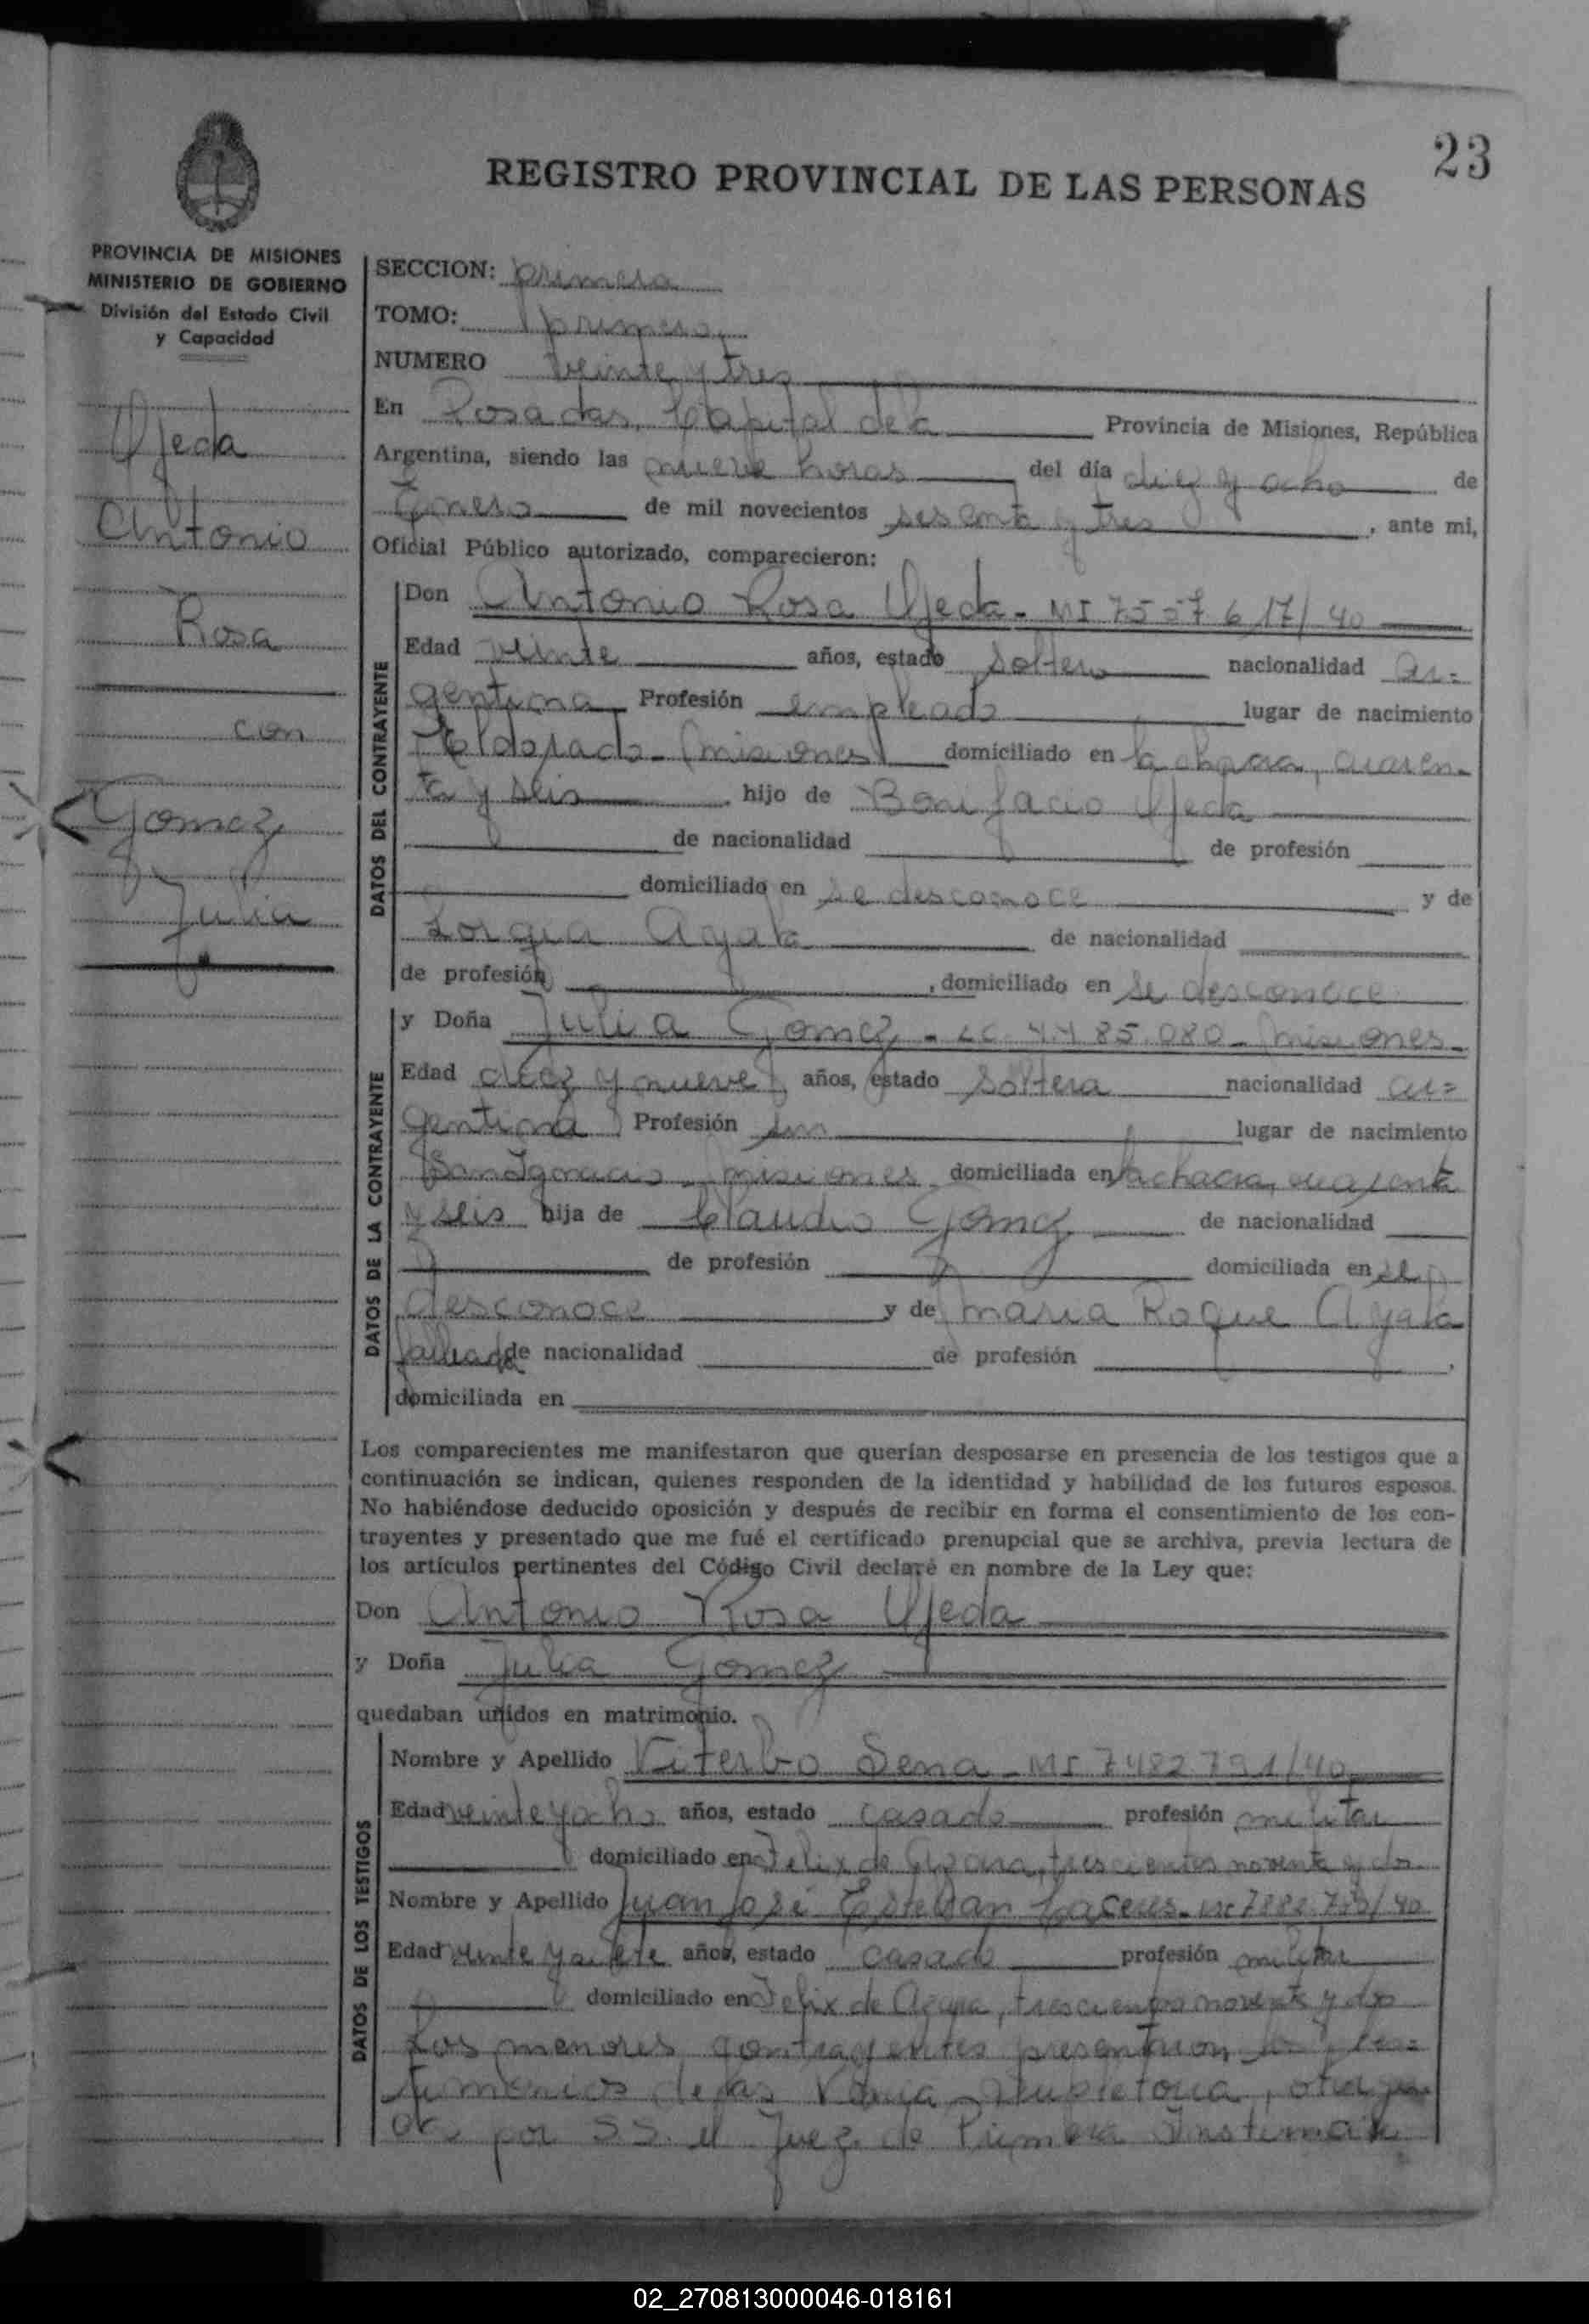 23
REGISTRO PROVINCIAL DE LAS PERSONAS
PROVINCIA DE MISIONES
MINISTERIO DE GOBIERNO
División del Estado Civil
y Capacidad
Ojeda
Antonio
Rosa
con
Gomez
Julia
SECCION: primera
TOMO: primero
NUMERO veinte y tres
En Posadas, Capital de la Provincia de Misiones, República
Argentina, siendo las nueve horas del día diez y ocho de
Enero de mil novecientos sesenta y tres, ante mi,
Oficial Público autorizado, comparecieron:
DATOS DEL CONTRAYENTE
Don Antonio Rosa Ojeda - MI
Edad veinte años, estado soltero nacionalidad ar=
gentina Profesión empleado lugar de nacimiento
Eldorado - Misiones domiciliado en la chacra, cuaren-
ta y seis hijo de Bonifacio Ojeda
de nacionalidad de profesión
domiciliado en se desconoce y de
Ayala de nacionalidad
de profesión , domiciliado en se desconoce
DATOS DE LA CONTRAYENTE
y Doña Julia Gomez - LC 4.485.080 - Misiones -
Edad diez y nueve años, estado soltera nacionalidad ar=
gentina Profesión sin lugar de nacimiento
San Ignacio - Misiones domiciliada en la chacra, cuarenta
y seis hija de Claudio Gomez de nacionalidad
de profesión domiciliada en se
desconoce y de Maria Roque Ayala
fallecida de nacionalidad de profesión ,
domiciliada en
Los comparecientes me manifestaron que querían desposarse en presencia de los testigos que a
continuación se indican, quienes responden de la identidad y habilidad de los futuros esposos.
No habiéndose deducido oposición y después de recibir en forma el consentimiento de los con-
trayentes y presentado que me fué el certificado prenupcial que se archiva, previa lectura de
los artículos pertinentes del Código Civil declaré en nombre de la Ley que:
Don Antonio Rosa Ojeda
y Doña Julia Gomez
quedaban unidos en matrimonio.
DATOS DE LOS TESTIGOS
Nombre y Apellido Viterbo Sena - MI 7482791/40
Edad veinte y ocho años, estado casado profesión militar
domiciliado en Felix de Azara, trescientos noventa y dos
Nombre y Apellido Juan José Esteban Caceres -
Edad veinte y siete años, estado casado profesión militar
domiciliado en Felix de Azara, trescientos noventa y dos
Los menores contrayentes presentaron los tes=
timonios de las Venia Supletoria, otorga
da por S.S. el Juez de Primera Instancia
02_270813000046-018161